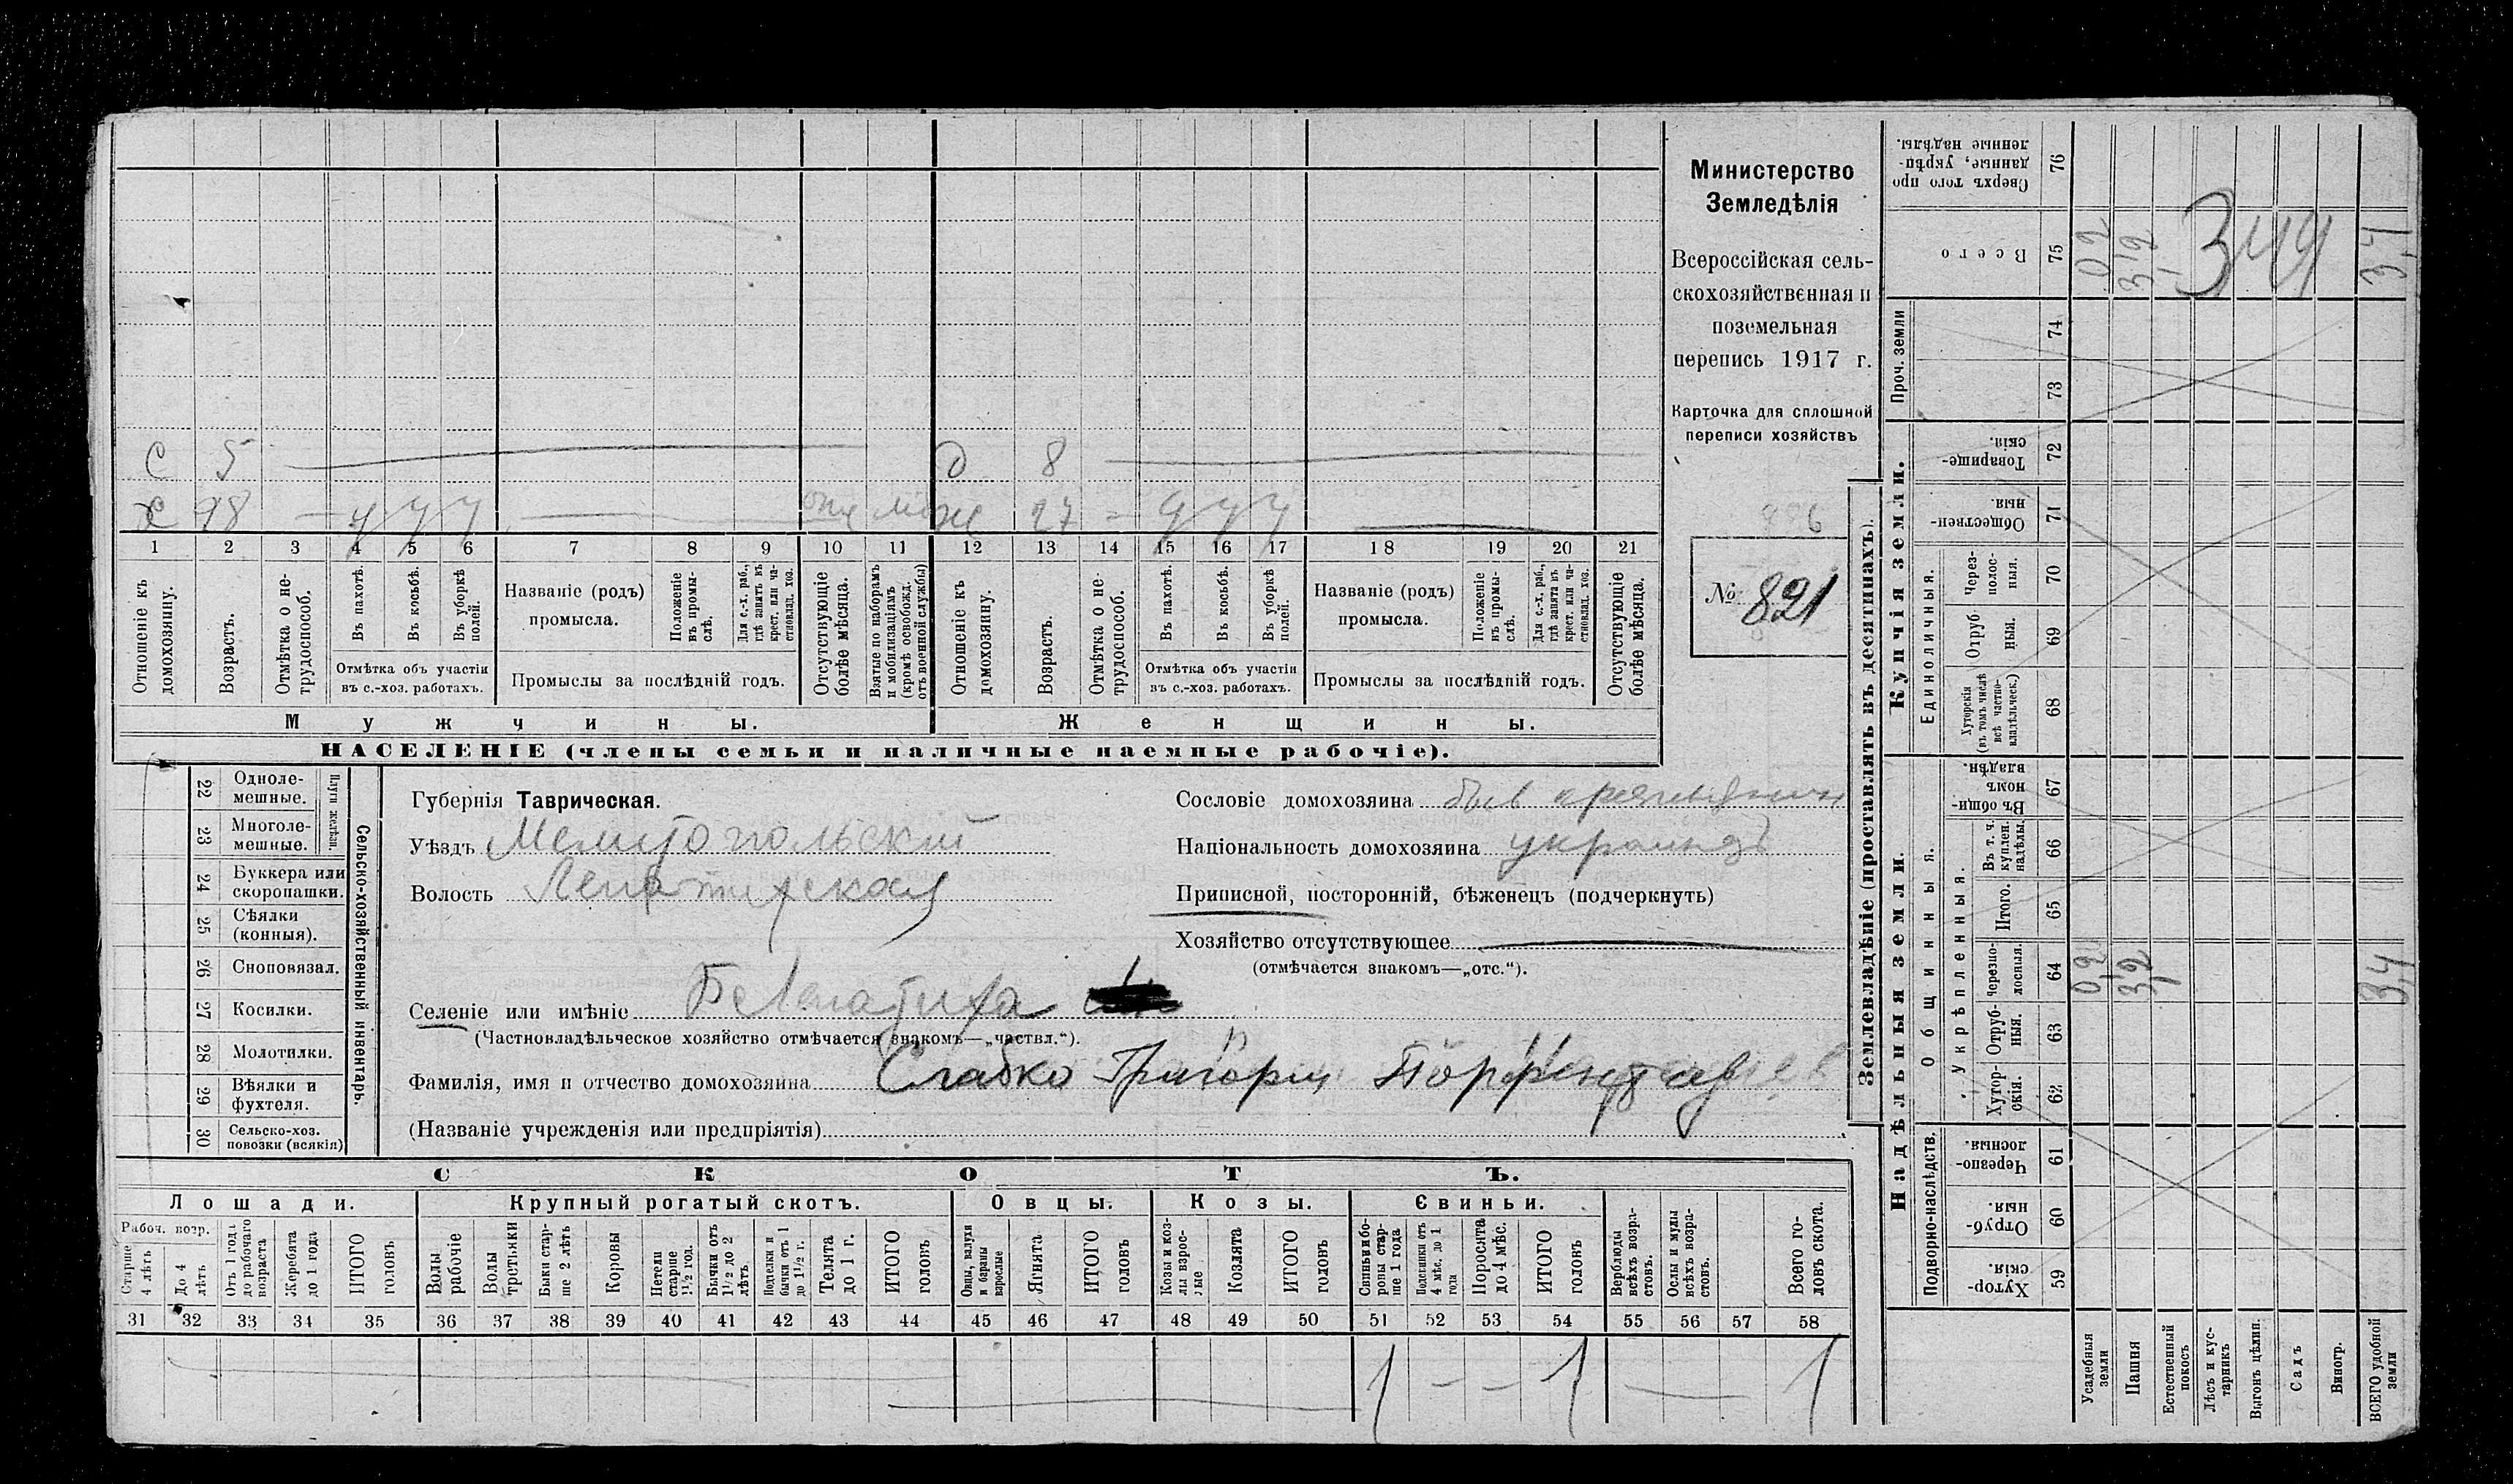 С 5 д 8
Х 18 у у у отс моб ж 27 у у у
1 2 3 4 5 6 7 8 9 10 11 12 13 14 15 16 17 18 19 20 21
Отношеніе къ домохозяину.
Возрастъ.
Отмѣтка о нетрудоспособ.
Въ пахотѣ.
Въ косьбѣ.
Въ уборкѣ полей.
Отмѣтка объ участіи
въ с.-хоз. работахъ.
Названіе (родъ)
промысла.
Положеніе въ промыслѣ.
Для с.-х. раб., гдѣ занятъ въ крест. или частновлад. хоз.
Промыслы за послѣдній годъ.
Отсутствующіе болѣе мѣсяца.
Взятые по наборамъ и мобилизаціямъ (кромѣ освобожд. отъ военной службы)
Отношеніе къ домохозяину.
Возрастъ.
Отмѣтка о нетрудоспособ.
Въ пахотѣ.
Въ косьбѣ.
Въ уборкѣ полей.
Отмѣтка объ участіи
въ с.-хоз. работахъ.
Названіе (родъ)
промысла.
Положеніе въ промыслѣ.
Для с.-х. раб., гдѣ занята въ крест. или частновлад. хоз.
Промыслы за послѣдній годъ.
Отсутствующіе болѣе мѣсяца.
Мужчины.
Женщины.
НАСЕЛЕНІЕ (члены семьи и наличные наемные рабочіе).
Министерство
Земледѣлія
Всероссійская сель-
скохозяйственная и
поземельная
перепись 1917 г.
Карточка для сплошной
переписи хозяйствъ
№ 821
22 Одноле-
мешные.
23 Многоле-
мешные.
Плуги желѣзн.
24 Буккера или
скоропашки.
25 Сѣялки
(конныя).
26 Сноповязал.
27 Косилки.
28 Молотилки.
29 Вѣялки и
фухтеля.
30 Сельско-хоз.
повозки (всякія)
Сельско-хозяйственный инвентарь.
Губернія Таврическая.
Уѣздъ Мелитопольскій
Волость Лепатихская
Селеніе или имѣніе Б Лепатиха
(Частновладѣльческое хозяйство отмѣчается знакомъ—„частвл.“).
Фамилія, имя и отчество домохозяина Слабко Григорій
(Названіе учрежденія или предпріятія)
Сословіе домохозяина быв
Національность домохозяина украинецъ
Приписной, посторонній, бѣженецъ (подчеркнуть)
Хозяйство отсутствующее
(отмѣчается знакомъ—„отс.“).
СКОТЪ.
Лошади. Крупный рогатый скотъ. Овцы. Козы. Свиньи.
Рабоч. возр.
Старше 4 лѣтъ
До 4 лѣтъ
Отъ 1 года до рабочаго возраста
Жеребята до 1 года
ИТОГО головъ
Волы рабочіе
Волы третьяки
Быки старше 2 лѣтъ
Коровы
Нетели старше 1½ год.
Бычки отъ 1½ до 2 лѣтъ
Подтелки и бычки отъ 1 до 1½ г.
Телята до 1 г.
ИТОГО головъ
Овцы, валухи и бараны взрослые
Ягнята
ИТОГО головъ
Козы и козлы взрослые
Козлята
ИТОГО головъ
Свиньи и боровы старше 1 года
Подсвинки отъ 4 мѣс. до 1 года
Поросята до 4 мѣс.
ИТОГО головъ
Верблюды всѣхъ возрастовъ.
Ослы и мулы всѣхъ возрастовъ.
Всего головъ скота.
31 32 33 34 35 36 37 38 39 40 41 42 43 44 45 46 47 48 49 50 51 52 53 54 55 56 57 58
1 – – 1 — 1
Землевладѣніе (проставлять въ десятинахъ).
Купчія земли.
Надѣльныя земли.
Сверхъ того проданные, укрѣпленные надѣлы. 76
Всего 75 02 3,2 3,4 3,4
Проч. земли 74 73
Товарищескія. 72
Общественныя. 71
Единоличныя.
Черезполосныя. 70
Отрубныя. 69
Хуторскія (въ томъ числѣ всѣ частновладѣльческ.) 68
Общинныя.
Въ общинномъ владѣн. 67
Укрѣпленныя.
Въ т. ч. куплен. надѣлы. 66
Итого. 65
Черезполосныя. 64 0,2 3,2 3,4
Отрубныя. 63
Хуторскія. 62
Подворно-наслѣдств.
Черезполосныя. 61
Отрубныя. 60
Хуторскія. 59
Усадебныя земли
Пашня
Естественный покосъ
Лѣсъ и кустарникъ
Выгонъ цѣлин.
Садъ
Виногр.
ВСЕГО удобной земли